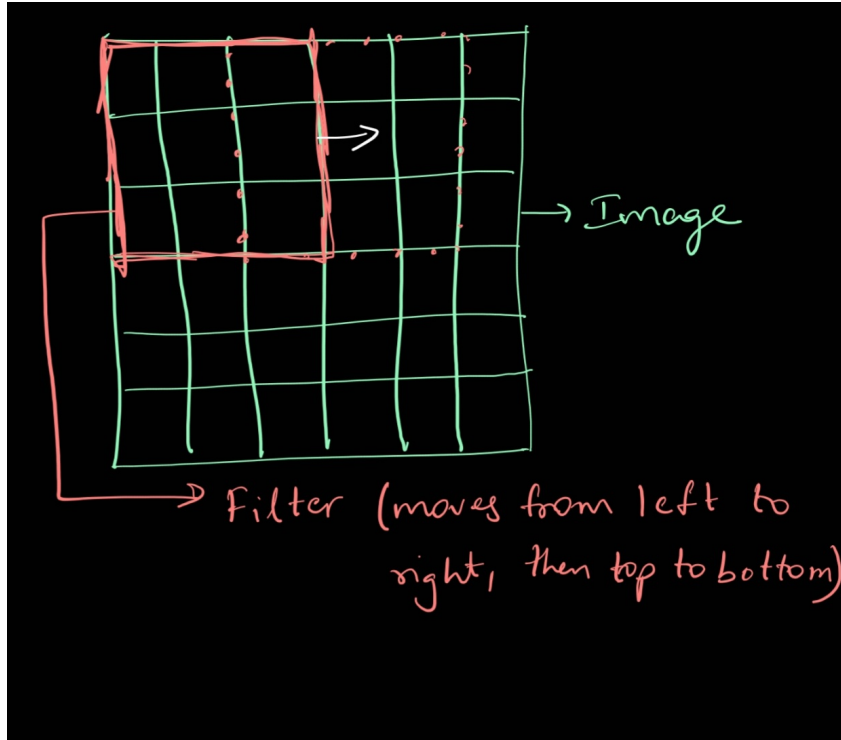 Image
Filter (moves from left to
right, then top to bottom)